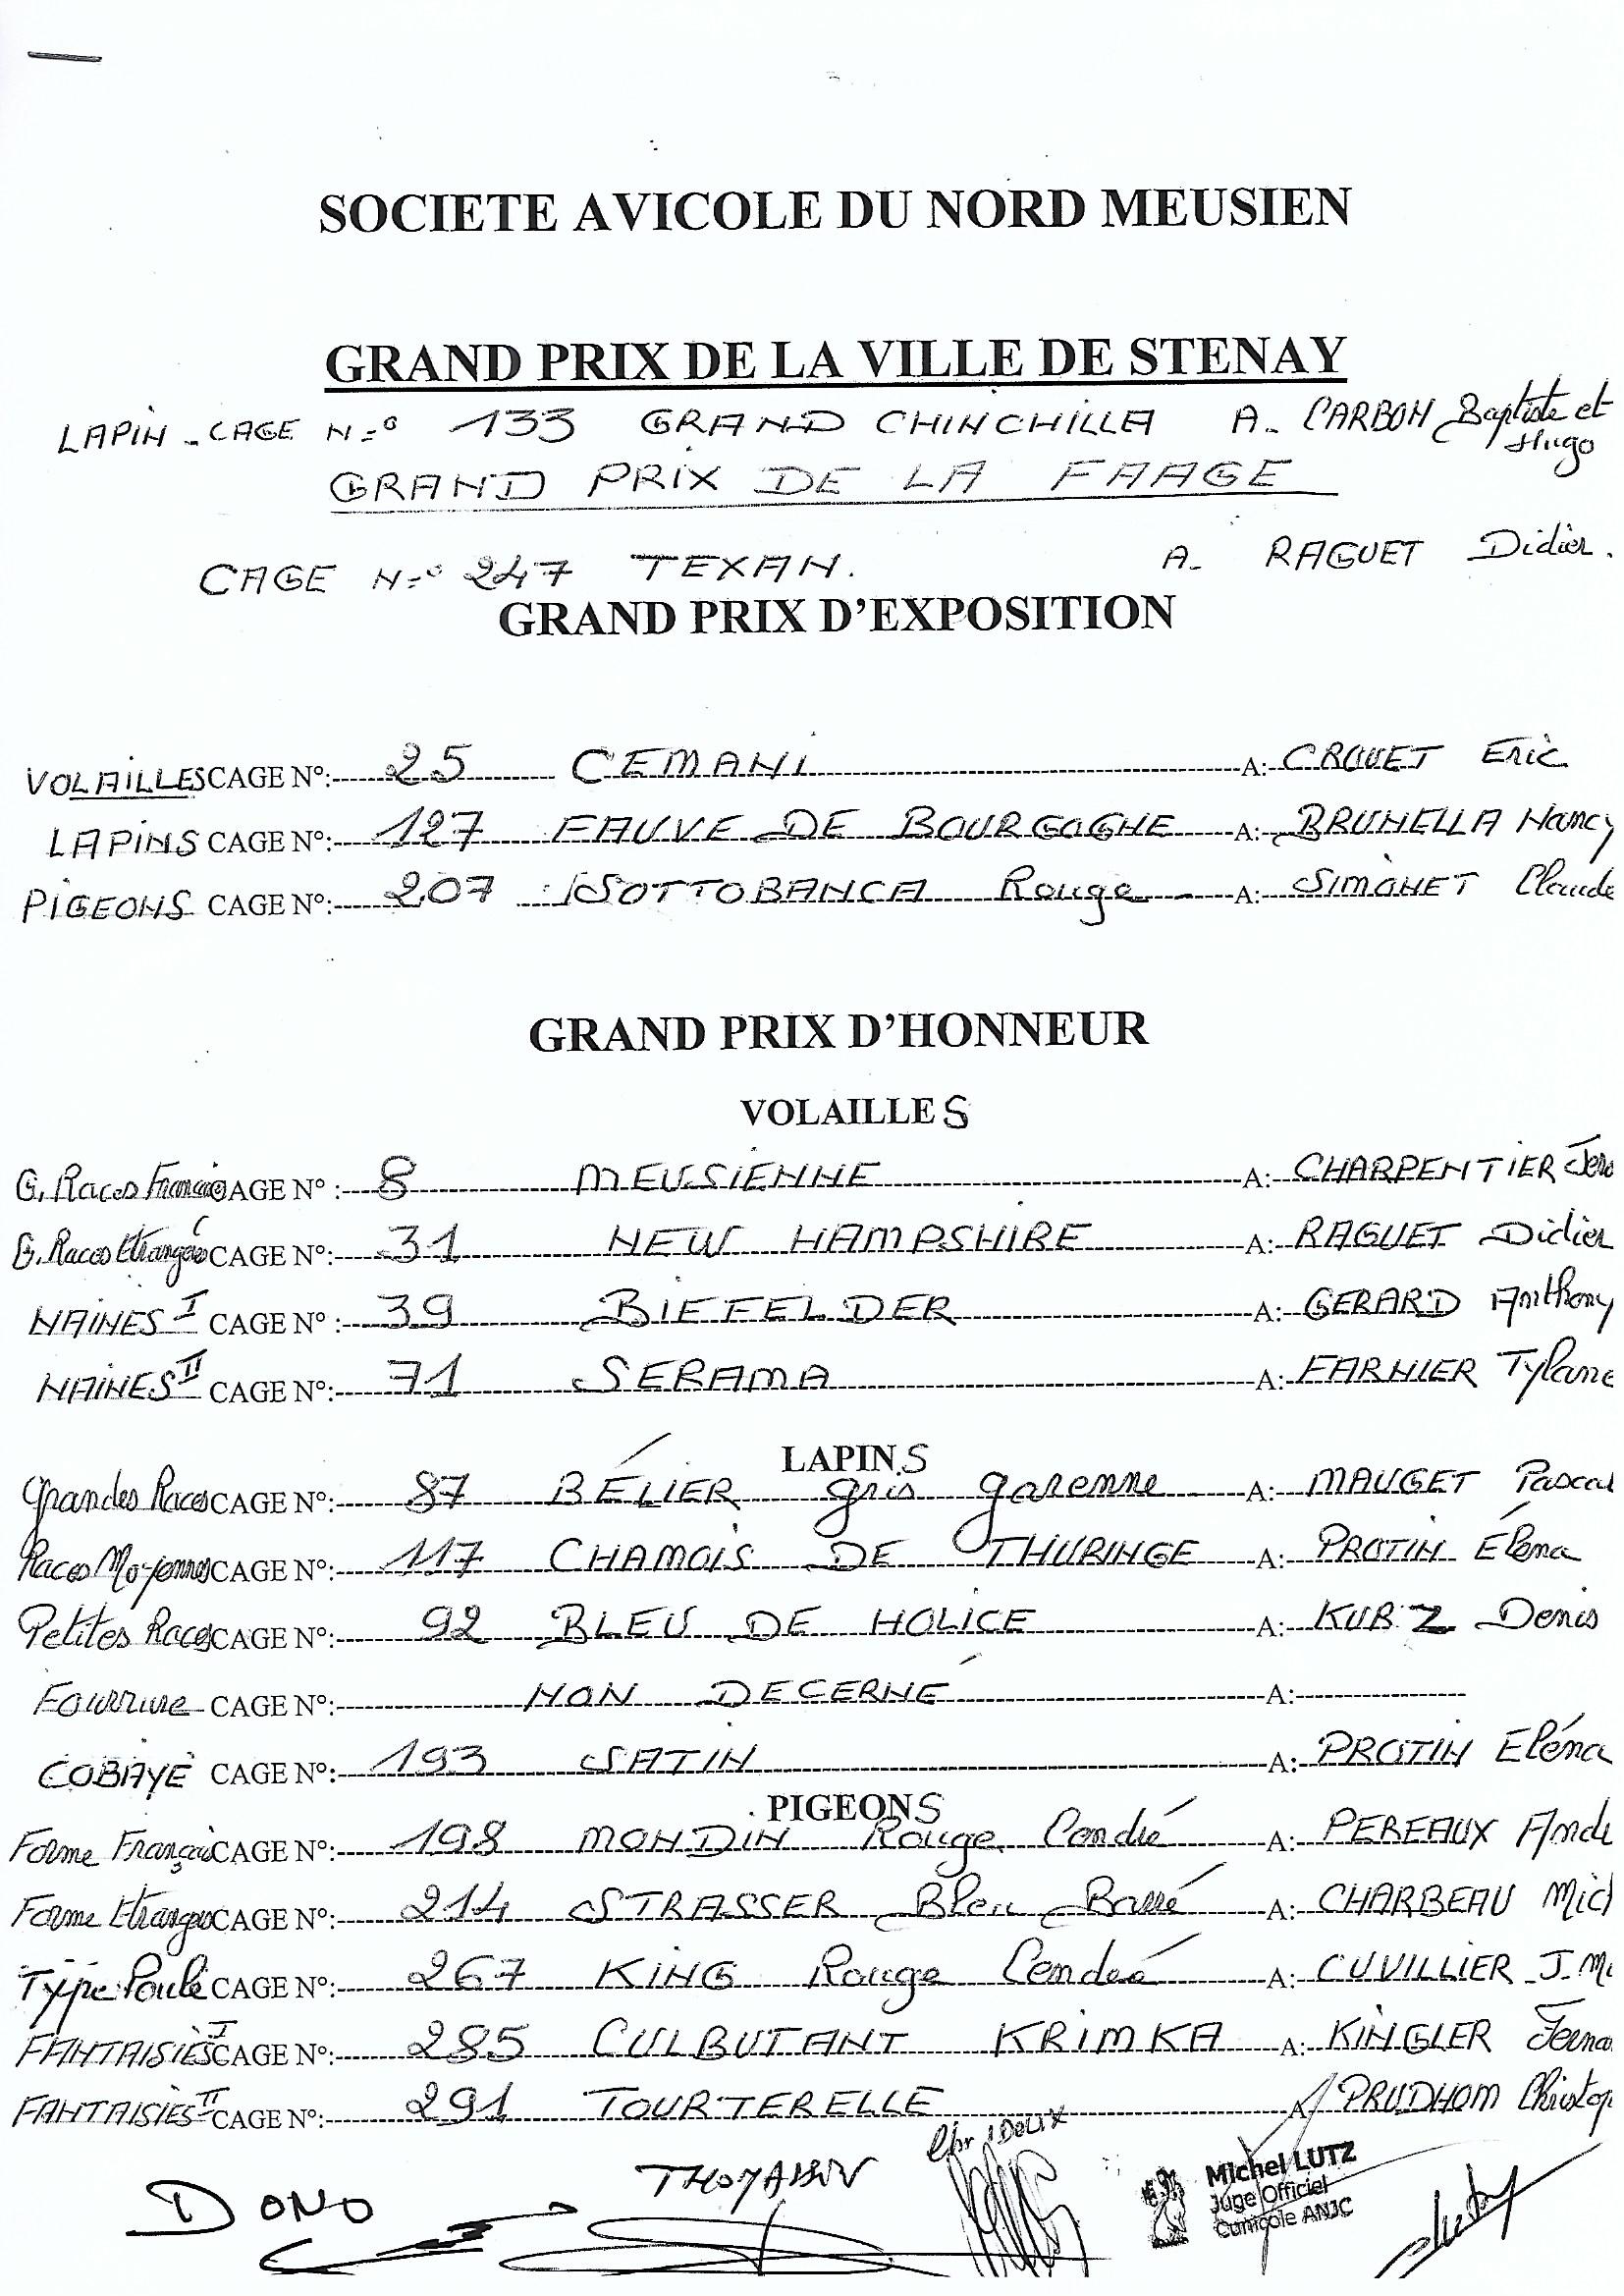 SOCIETE AVICOLE DU NORD MEUSIEN
GRAND PRIX DE LA VILLE DE STENAY
LAPIN - CAGE N=° 133 GRAND CHINCHILLA A - CARBON Baptiste et Hugo
GRAND PRIX DE LA FAAGE
CAGE N=° 247 TEXAN. A - RAGUET Didier.
GRAND PRIX D'EXPOSITION
VOLAILLES CAGE N°: 25 CEMANI A: CROUET Eric
LAPINS CAGE N°: 127 FAUVE DE BOURGOGNE A: BRUNELLA Nancy
PIGEONS CAGE N°: 207 SOTTOBANCA Rouge A: SIMONET Claude
GRAND PRIX D'HONNEUR
VOLAILLES
G. Races Françaises CAGE N° : 8 MEUSIENNE A: CHARPENTIER Jero
G. Races Etrangères CAGE N°: 31 NEW HAMPSHIRE A: RAGUET Didier
NAINES I CAGE N° : 39 BIEFELDER A: GERARD Anthony
NAINES II CAGE N°: 71 SERAMA A: FARNIER Tylane
LAPINS
Grandes Races CAGE N°: 87 BÉLIER gris garenne A: MAUGET Pascal
Races Moyennes CAGE N°: 117 CHAMOIS DE THURINGE A: PROTIN Éléna
Petites Races CAGE N°: 92 BLEU DE HOLICE A: KURZ Denis
Fourrure CAGE N°: NON DECERNÉ A:
COBAYE CAGE N°: 193 SATIN A: PROTIN Eléna
PIGEONS
Forme Français CAGE N°: 198 MONDIN Rouge Cendré A: PEREAUX Andr
Forme Etrangers CAGE N°: 214 STRASSER Bleu Barré A: CHARBEAU Mich
Type Poule CAGE N°: 267 KING Rouge Cendré A: CUVILLIER J.M
FANTAISIES I CAGE N°: 285 CULBUTANT KRIMKA A: KINGLER Ferna
FANTAISIES II CAGE N°: 291 TOURTERELLE A PRUDHOM Christop
DONO THOMASSIN Chr IDOUX
Michel LUTZ
Juge Officiel
Cunicole ANJC